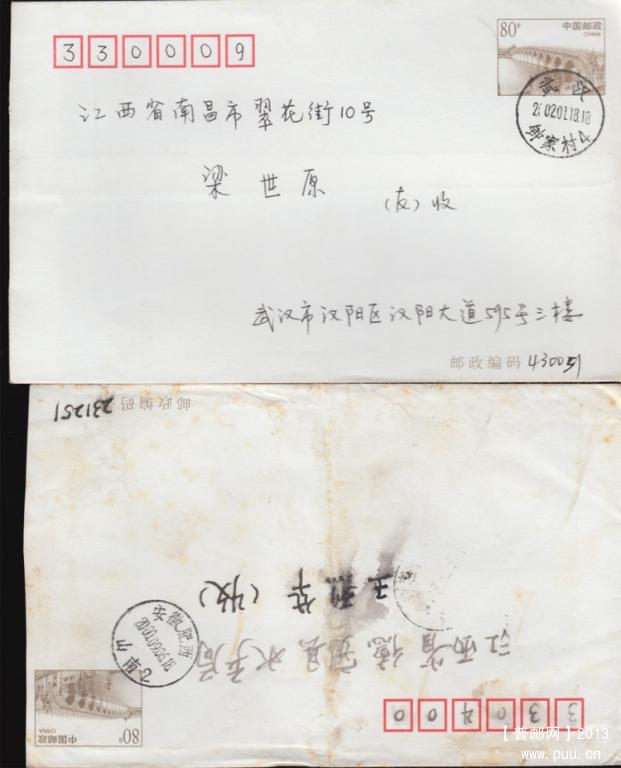 330009
80分
中国邮政
CHINA
武汉
2002.01.18.18
邹家村4
江西省南昌市翠花街10号
梁世原
(友)收
武汉市汉阳区汉阳大道595号三楼
邮政编码 430051
330400
江西省德安县水产局
王 华(收)
安徽肥西
2000.09.06.18
山南2
80分
中国邮政
CHINA
邮政编码 231251
【普邮网】2013
www.puu.cn